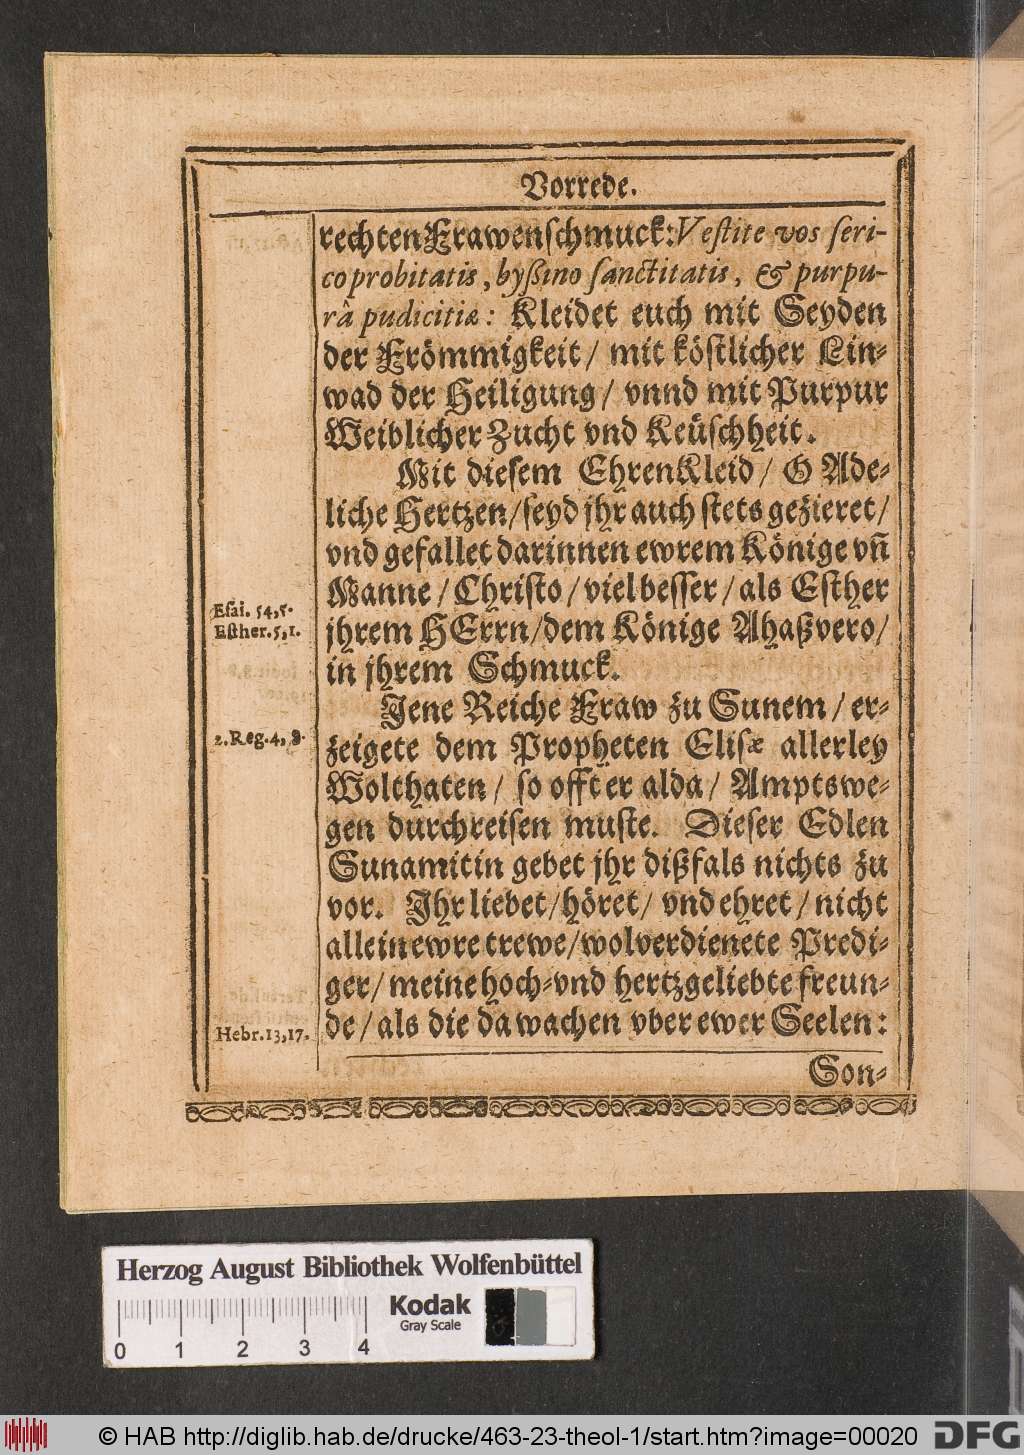 Vorrede.
rechten Frawenschmuck: Vestite vos seri-
co probitatis, byßino sanctitatis, & purpu-
râ pudicitiæ: Kleidet euch mit Seyden
der Frömmigkeit/ mit köstlicher Lin-
wad der Heiligung/ vnnd mit Purpur
Weiblicher Zucht vnd Keüschheit.
Mit diesem EhrenKleid/ O Ade-
liche Hertzen/ seyd jhr auch stets gezieret/
vnd gefallet darinnen ewrem Könige vñ
Manne/ Christo/ viel besser/ als Esther
Esai. 54,5.
Esther. 5,1.
jhrem HErrn/ dem Könige Ahaßvero/
in jhrem Schmuck.
Jene Reiche Fraw zu Sunem/ er-
2. Reg. 4, 8.
zeigete dem Propheten Elisæ allerley
Wolthaten/ so offt er alda/ Amptswe-
gen durchreisen muste. Dieser Edlen
Sunamitin gebet jhr dißfals nichts zu
vor. Jhr liebet/ höret/ vnd ehret/ nicht
allein ewre trewe/ wolverdienete Predi-
ger/ meine hoch-vnd hertzgeliebte freun-
Hebr. 13,17.
de/ als die da wachen vber ewer Seelen:
Son-
Herzog August Bibliothek Wolfenbüttel
Kodak
Gray Scale
0 1 2 3 4
© HAB http://diglib.hab.de/drucke/463-23-theol-1/start.htm?image=00020
DFG